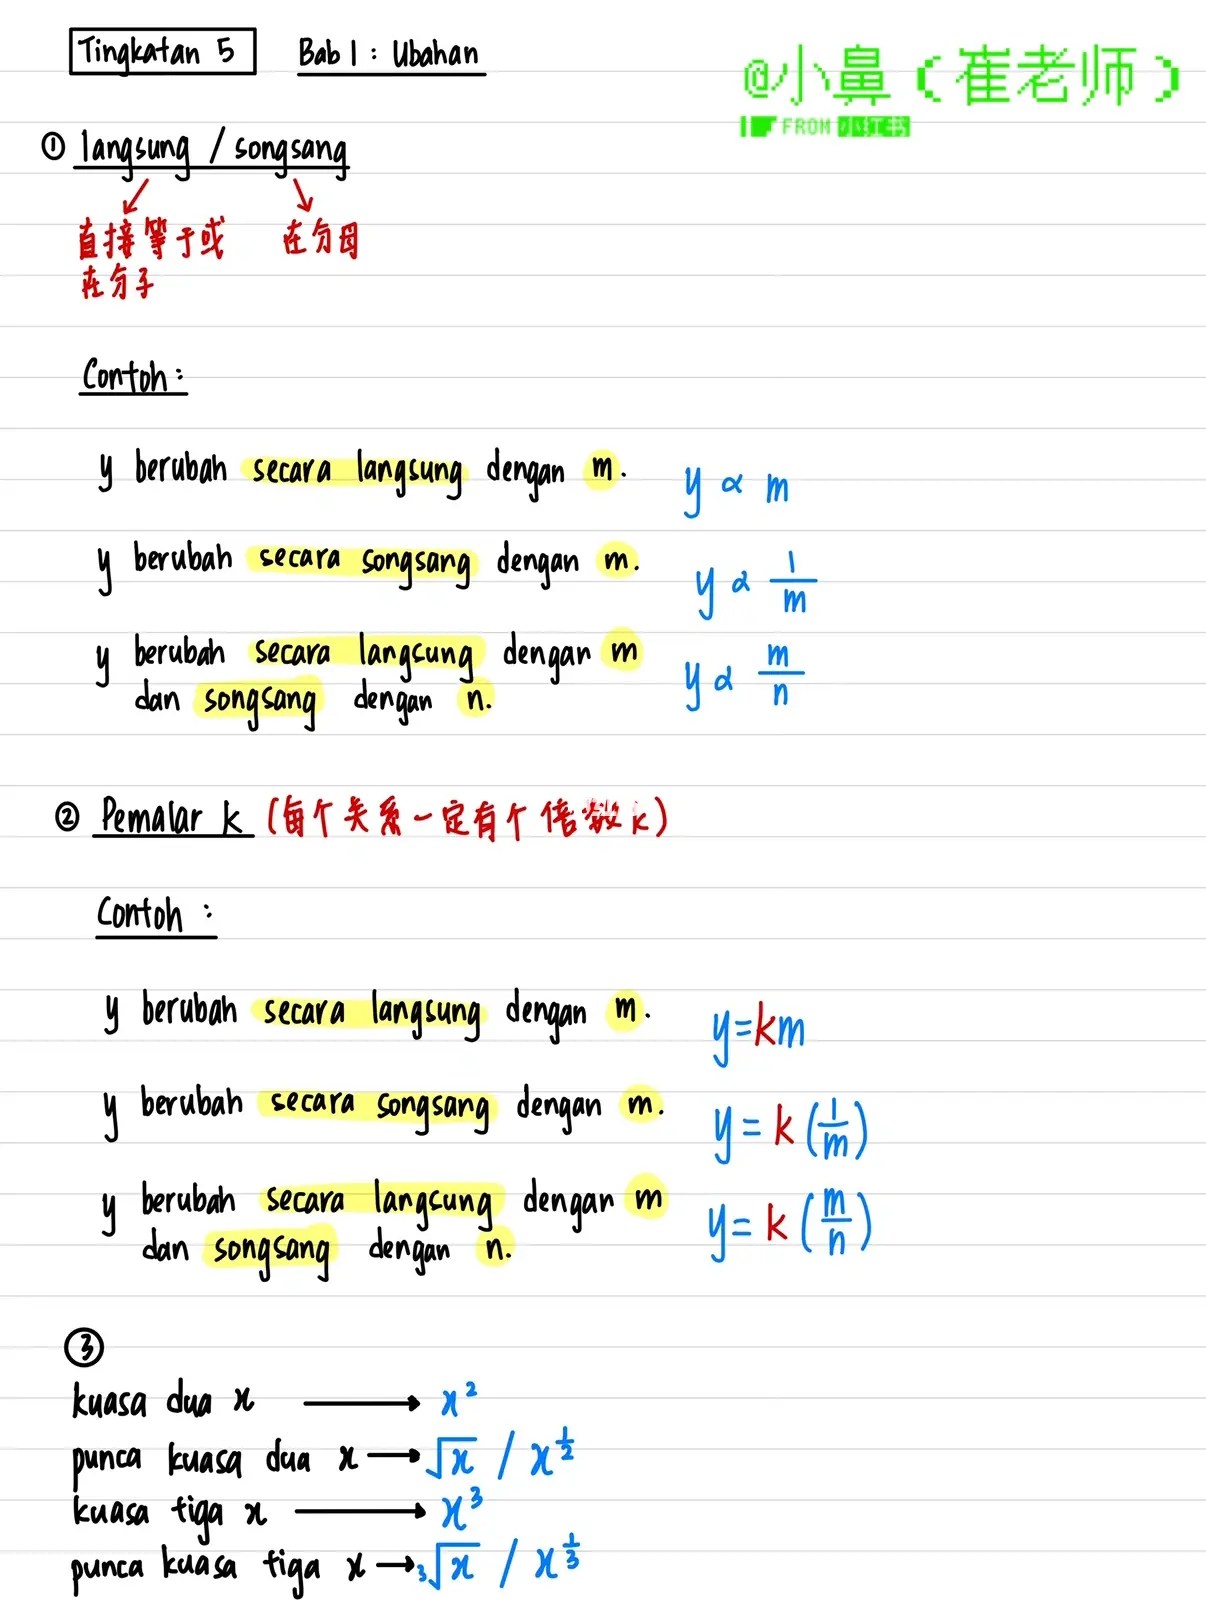 Tingkatan 5 Bab 1 : Ubahan
@小鼻(崔老师)
FROM 小红书
① langsung / songsang
直接等于或 在分母
在分子
Contoh :
y berubah secara langsung dengan m. y ∝ m
y berubah secara songsang dengan m. y ∝ 1/m
y berubah secara langsung dengan m y ∝ m/n
dan songsang dengan n.
② Pemalar k (每个关系一定有个倍数k)
Contoh :
y berubah secara langsung dengan m. y=km
y berubah secara songsang dengan m. y = k (1/m)
y berubah secara langsung dengan m y = k (m/n)
dan songsang dengan n.
③
kuasa dua x → x²
punca kuasa dua x → √x / x^1/2
kuasa tiga x → x³
punca kuasa tiga x → ³√x / x^1/3